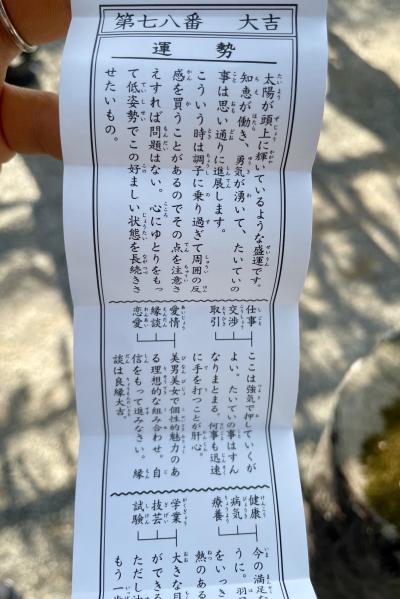 第七八番 大吉
運勢
太陽が頭上に輝いているような盛運です。
知恵が働き、勇気が湧いて、たいていの
事は思い通りに進展します。
こういう時は調子に乗り過ぎて周囲の反
感を買うことがあるのでその点を注意さ
えすれば問題はない。心にゆとりをもっ
て低姿勢でこの好ましい状態を長続きさ
せたいもの。
仕事
交渉
取引
ここは強気で押していくが
よい。たいていの事はすん
なりまとまる。何事も迅速
に手を打つことが肝心。
愛情
縁談
恋愛
美男美女で個性的魅力のあ
る理想的な組み合わせ。自
信をもって進みなさい。縁
談は良縁大吉。
健康
病気
療養
今の満足な
うに。羽
をいっき
熱のある
学業
技芸
試験
大きな目
ができる
ただし油
もう一